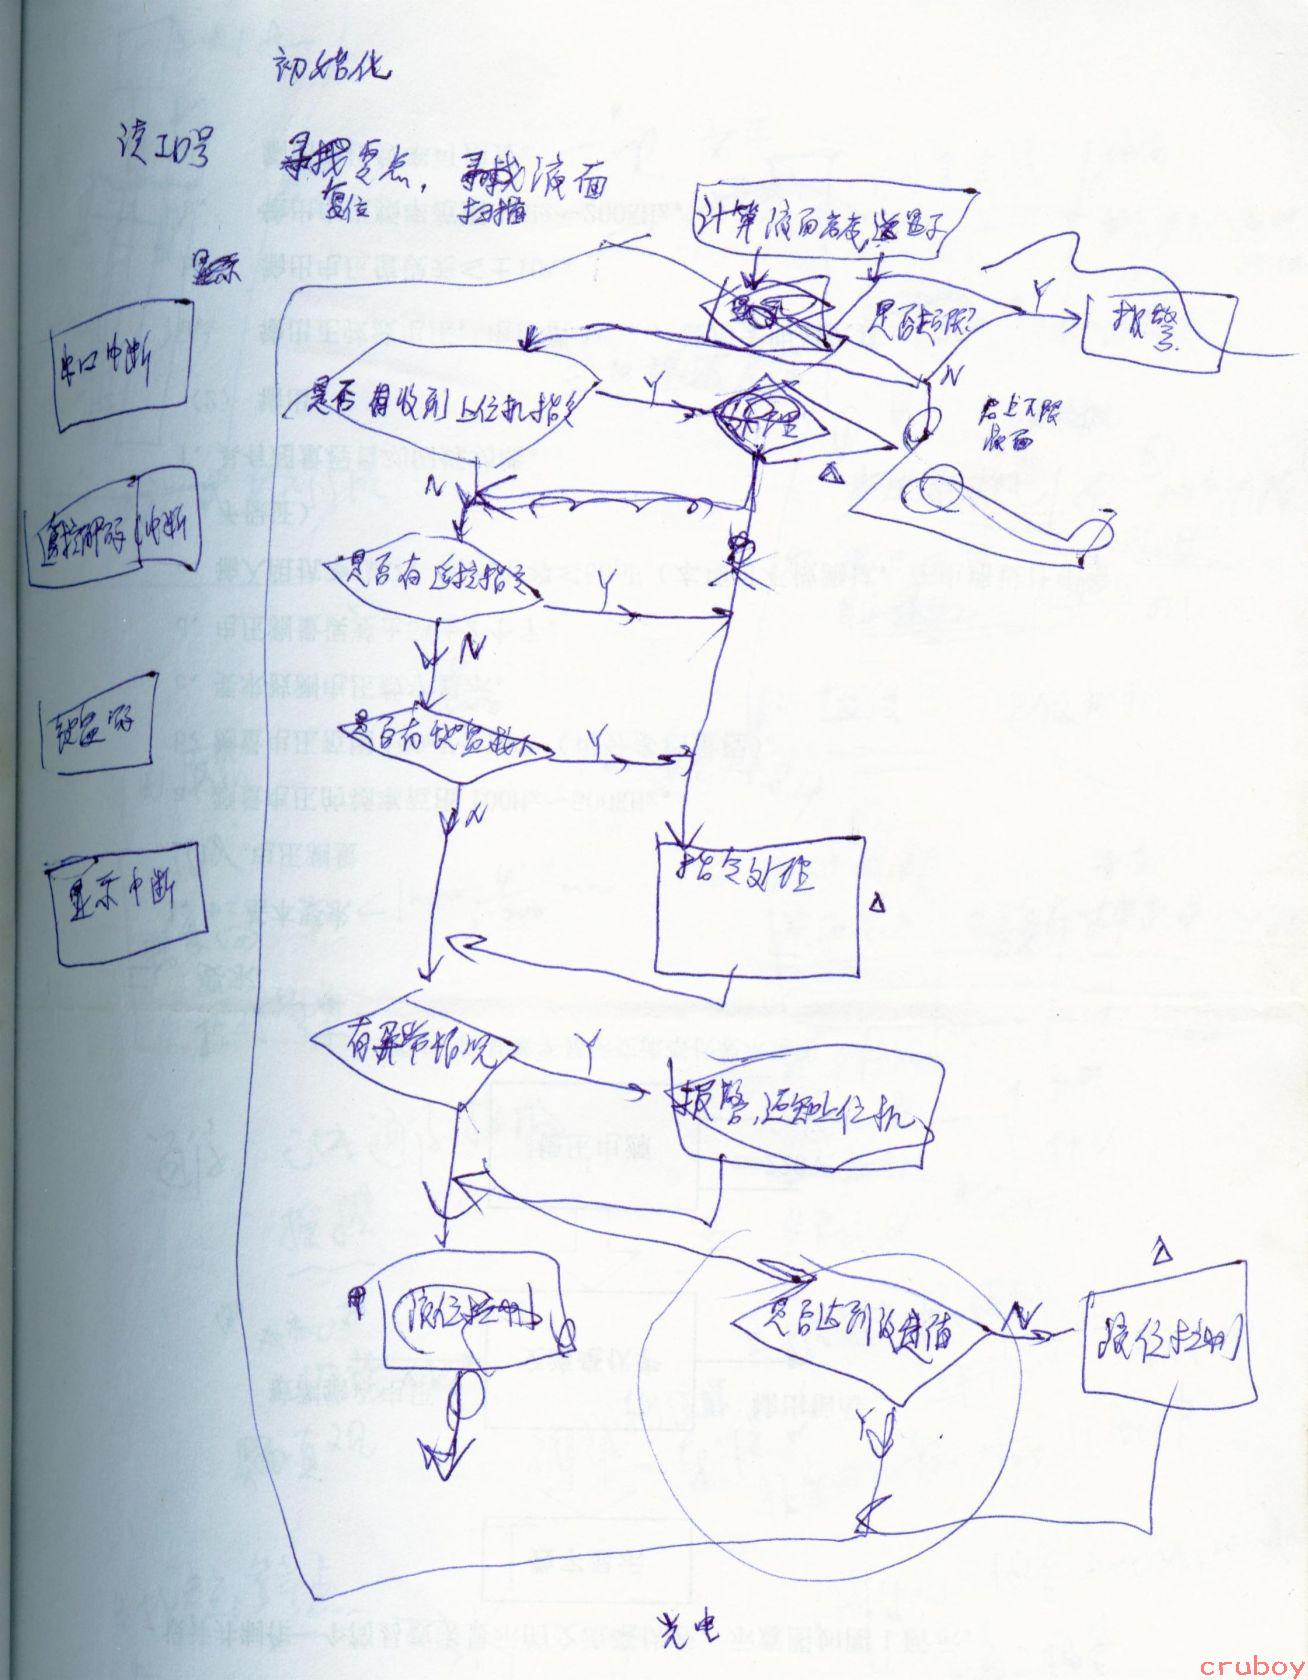 初始化
读ID号
寻找零点,寻找液面
复位 扫描
计算液面高度,送显示
显示
是否超限
Y
报警
串口中断
是否有收到上位机指令
Y
处理
N
若上下限
液面
遥控解码中断
N
是否有遥控指令
Y
N
键盘
是否有键盘输入
Y
N
显示中断
指令处理
Δ
有异常情况
Y
报警,通知上位机
Δ
液位控制
是否达到设定值
N
液位控制
Y
光电
cruboy